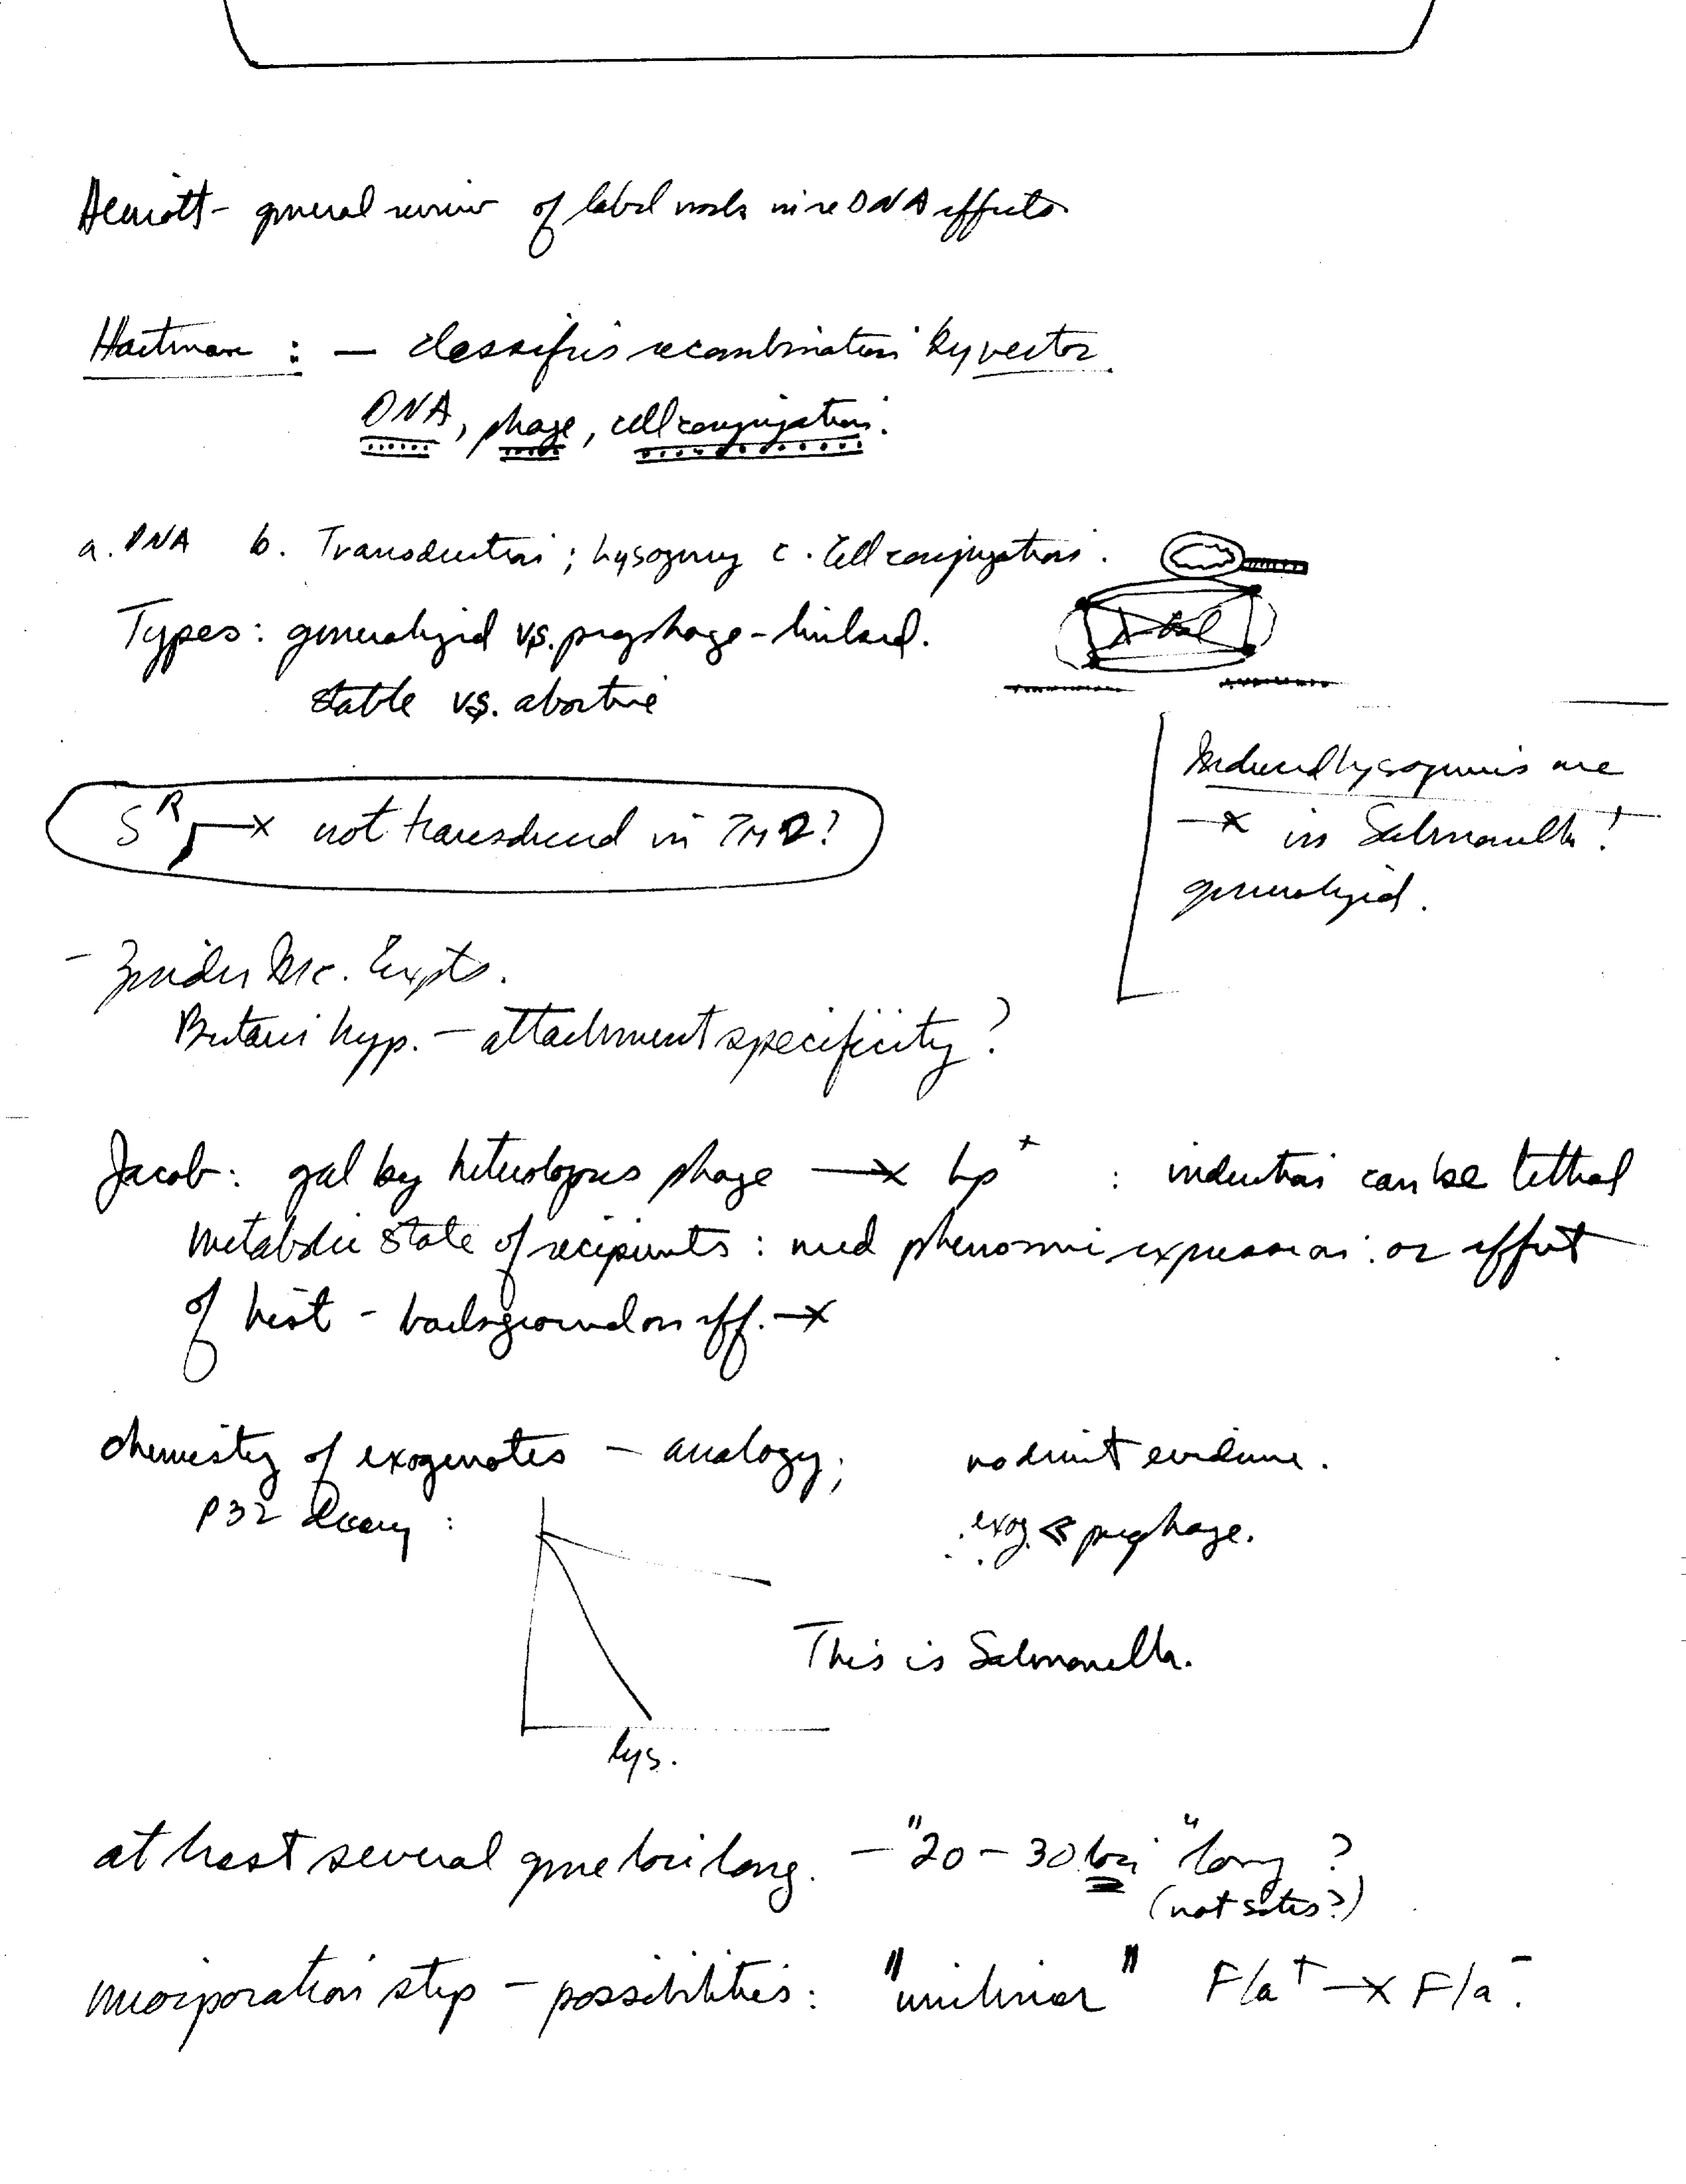 Herriott - general review of label work in re DNA effects
Hartman : — classifies recombination by vector
DNA, phage, cell conjugation.
a. DNA b. Transduction ; Lysogeny c. Cell conjugation.
Types: generalized vs. prophage-linked.
stable vs. abortive
Induced lysogenics are
—x in Salmonella!
generalized.
S^R —x not transduced in TM2?
- Zinder Mic. Expts.
hyp. — attachment specificity?
Jacob: gal by heterologous phage —x Lp^+ : induction can be lethal
Metabolic state of recipients: need phenomic expression: or effect
of host - background on eff. —x
chemistry of exogenotes — analogy; no direct evidence.
P32 decay : ∴ exog ≪ prophage.
This is Salmonella.
lys.
at least several gene loci long. — "20-30 loci" long?
(not sites?)
incorporation step — possibilities: "unilinear" Fla^+ —x Fla^-.